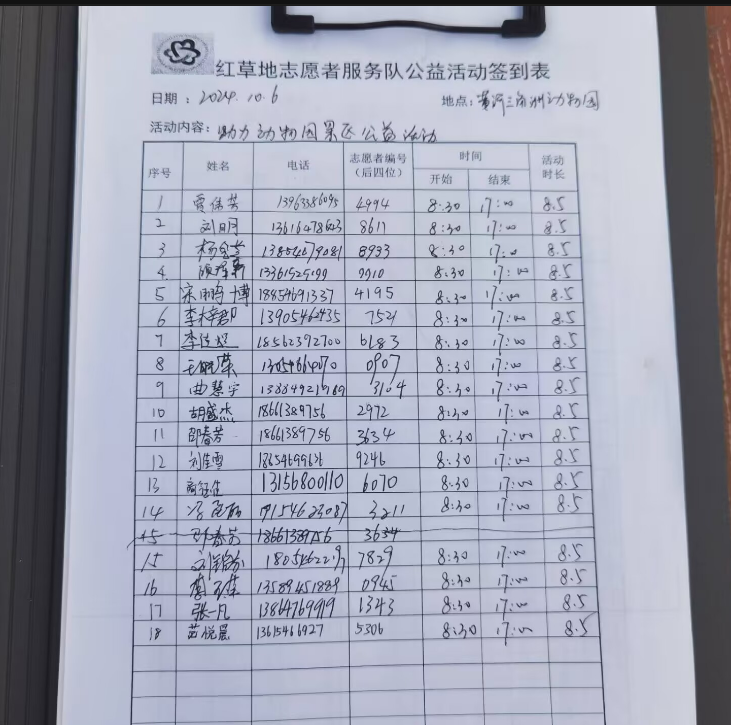 红草地志愿者服务队公益活动签到表
日期：2024.10.6 地点：黄河三角洲动物园
活动内容：助力动物园景区公益活动
序号 姓名 电话 志愿者编号（后四位） 时间 开始 结束 活动时长
1 4994 8:30 17:00 8.5
2 刘明 8611 8:30 17:00 8.5
3 8933 8:30 17:00 8.5
4 9910 8:30 17:00 8.5
5 宋鹏博 18854691337 4195 8:30 17:00 8.5
6 13905462435 7521 8:30 17:00 8.5
7 18562392700 6183 8:30 17:00 8.5
8 0907 8:30 17:00 8.5
9 曲慧宇 3104 8:30 17:00 8.5
10 胡盛杰 18661389756 2972 8:30 17:00 8.5
11 邵春芳 18661389756 3634 8:30 17:00 8.5
12 刘佳雪 9246 8:30 17:00 8.5
13 13156800110 6070 8:30 17:00 8.5
14 3211 8:30 17:00 8.5
15 邵春芳 18661389756 3634
15 7829 8:30 17:00 8.5
16 13589451889 0945 8:30 17:00 8.5
17 张一凡 13864769919 1343 8:30 17:00 8.5
18 苗悦晨 13615466927 5306 8:30 17:00 8.5